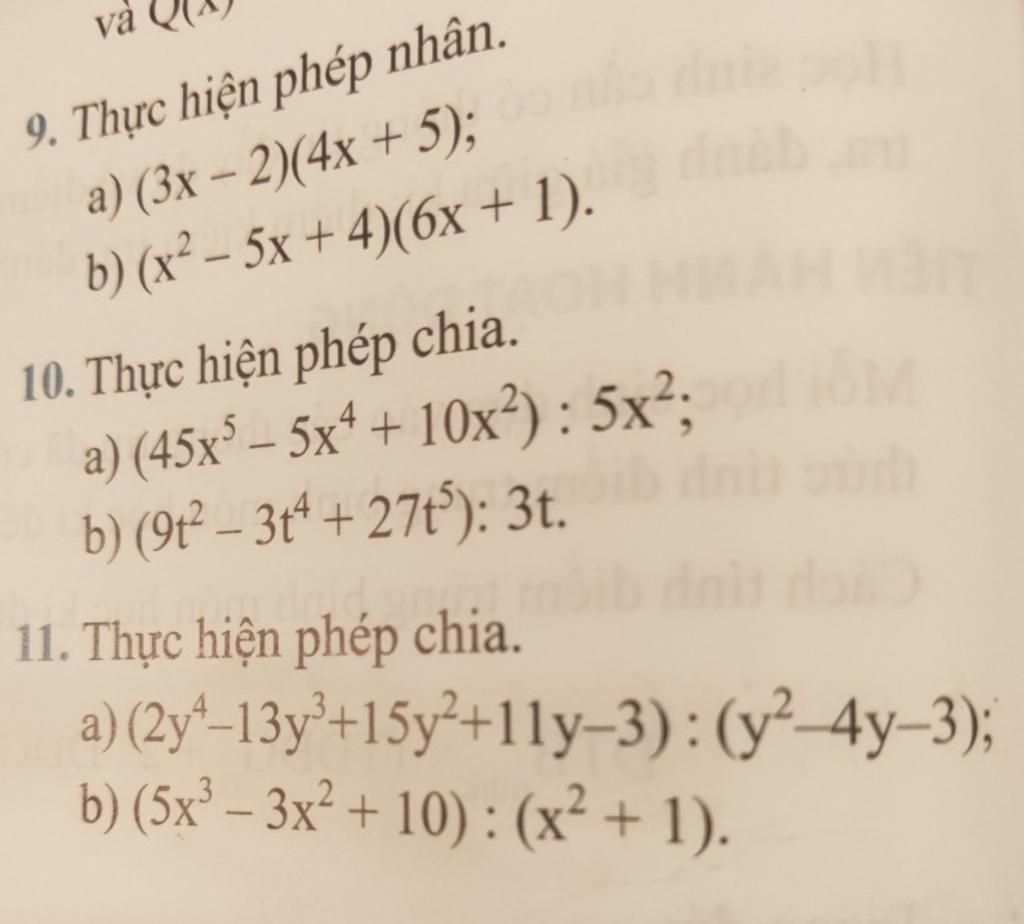 và Q(x)
9. Thực hiện phép nhân.
a) (3x – 2)(4x + 5);
b) (x² – 5x + 4)(6x + 1).
10. Thực hiện phép chia.
a) (45x⁵ – 5x⁴ + 10x²) : 5x²;
b) (9t² – 3t⁴ + 27t⁵): 3t.
11. Thực hiện phép chia.
a) (2y⁴–13y³+15y²+11y–3) : (y²–4y–3);
b) (5x³ – 3x² + 10) : (x² + 1).